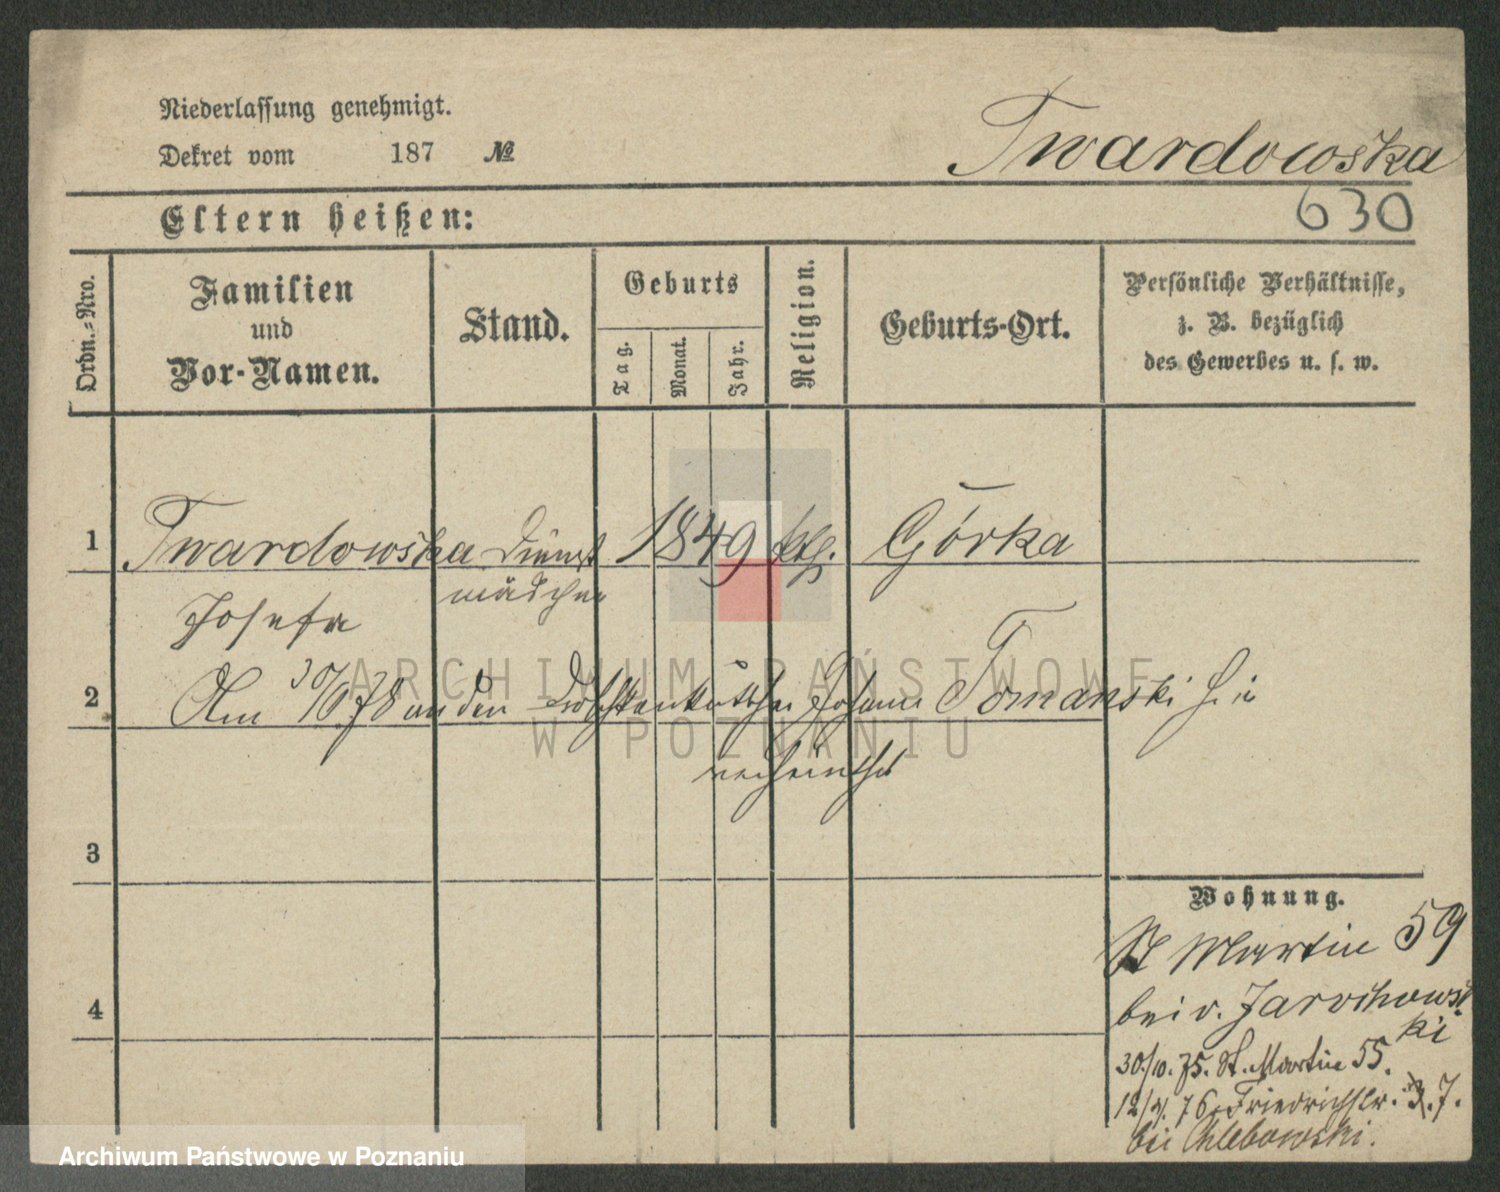 Niederlassung genehmigt.
Dekret vom 187 №
Twardowska
630
Eltern heißen:
Ordn.=Nro.
Familien
und
Vor-Namen.
Stand.
Geburts
Tag.
Monat.
Jahr.
Religion.
Geburts-Ort.
Persönliche Verhältnisse,
z. B. bezüglich
des Gewerbes u. s. w.
1 Twardowska Dienst 1849 kth. Górka
mädchen
Josefa
2 Am 30/6 78 an den Droschkenkutscher Johann Tomanski hie
verheirathet
3
4
Wohnung.
St Martin 59
bei v. Jarochowski
30/10. 75. St. Martin 55.
12/4. 76. Friedrichstr. 7.
bei Chlebowski.
ARCHIWUM PAŃSTWOWE
W POZNANIU
Archiwum Państwowe w Poznaniu